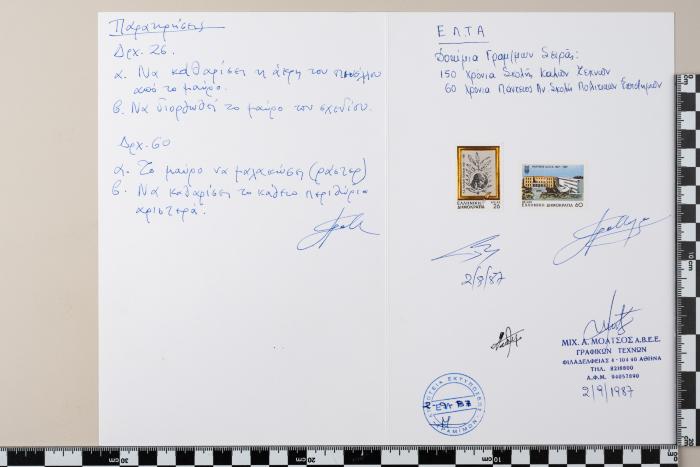 Παρατηρήσεις
Δρχ. 26.
α. Να καθαρίσει η άκρη του
από το μαύρο.
β. Να διορθωθεί το μαύρο του σχεδίου.
Δρχ. 60
α. Το μαύρο να μαλακώσει (ράστερ)
β. Να καθαρίσει το κάθετο περιθώριο
αριστερά.
ΕΛΤΑ
Δοκίμια Γραμ/μων Σειράς:
150 Χρόνια Σχολή Καλών Τεχνών
60 Χρόνια Πάντειος Αν. Σχολή Πολιτικών Επιστημών
ΕΛΛΗΝΙΚΗ
ΔΗΜΟΚΡΑΤΙΑ 26
ΕΛΛΗΝΙΚΗ ΔΗΜΟΚΡΑΤΙΑ 60
2/9/87
ΜΙΧ. Α. ΜΟΑΤΣΟΣ Α.Β.Ε.Ε.
ΓΡΑΦΙΚΩΝ ΤΕΧΝΩΝ
ΦΙΛΑΔΕΛΦΕΙΑΣ 4 - 104 40 ΑΘΗΝΑ
ΤΗΛ. 8218800
Α.Φ.Μ. 94057890
2/9/1987
30
20
10
0 cm
10 cm